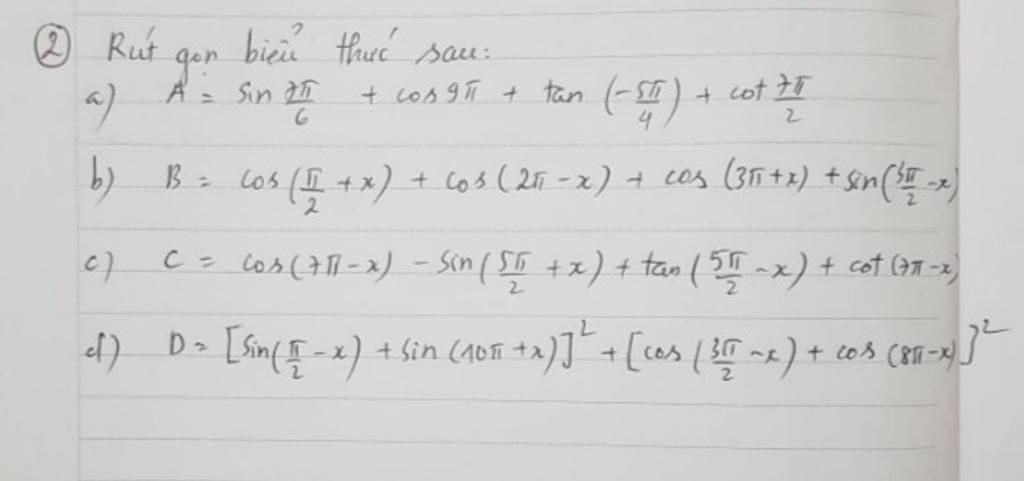 ② Rút gọn biểu thức sau:
a) A = sin 7π/6 + cos 9π + tan (-5π/4) + cot 7π/2
b) B = cos (π/2 + x) + cos (2π - x) + cos (3π + x) + sin(3π/2 - x)
c) C = cos(7π - x) - sin (5π/2 + x) + tan (5π/2 - x) + cot (7π - x)
d) D = [sin(π/2 - x) + sin (10π + x)]² + [cos (3π/2 - x) + cos (8π - x)]²